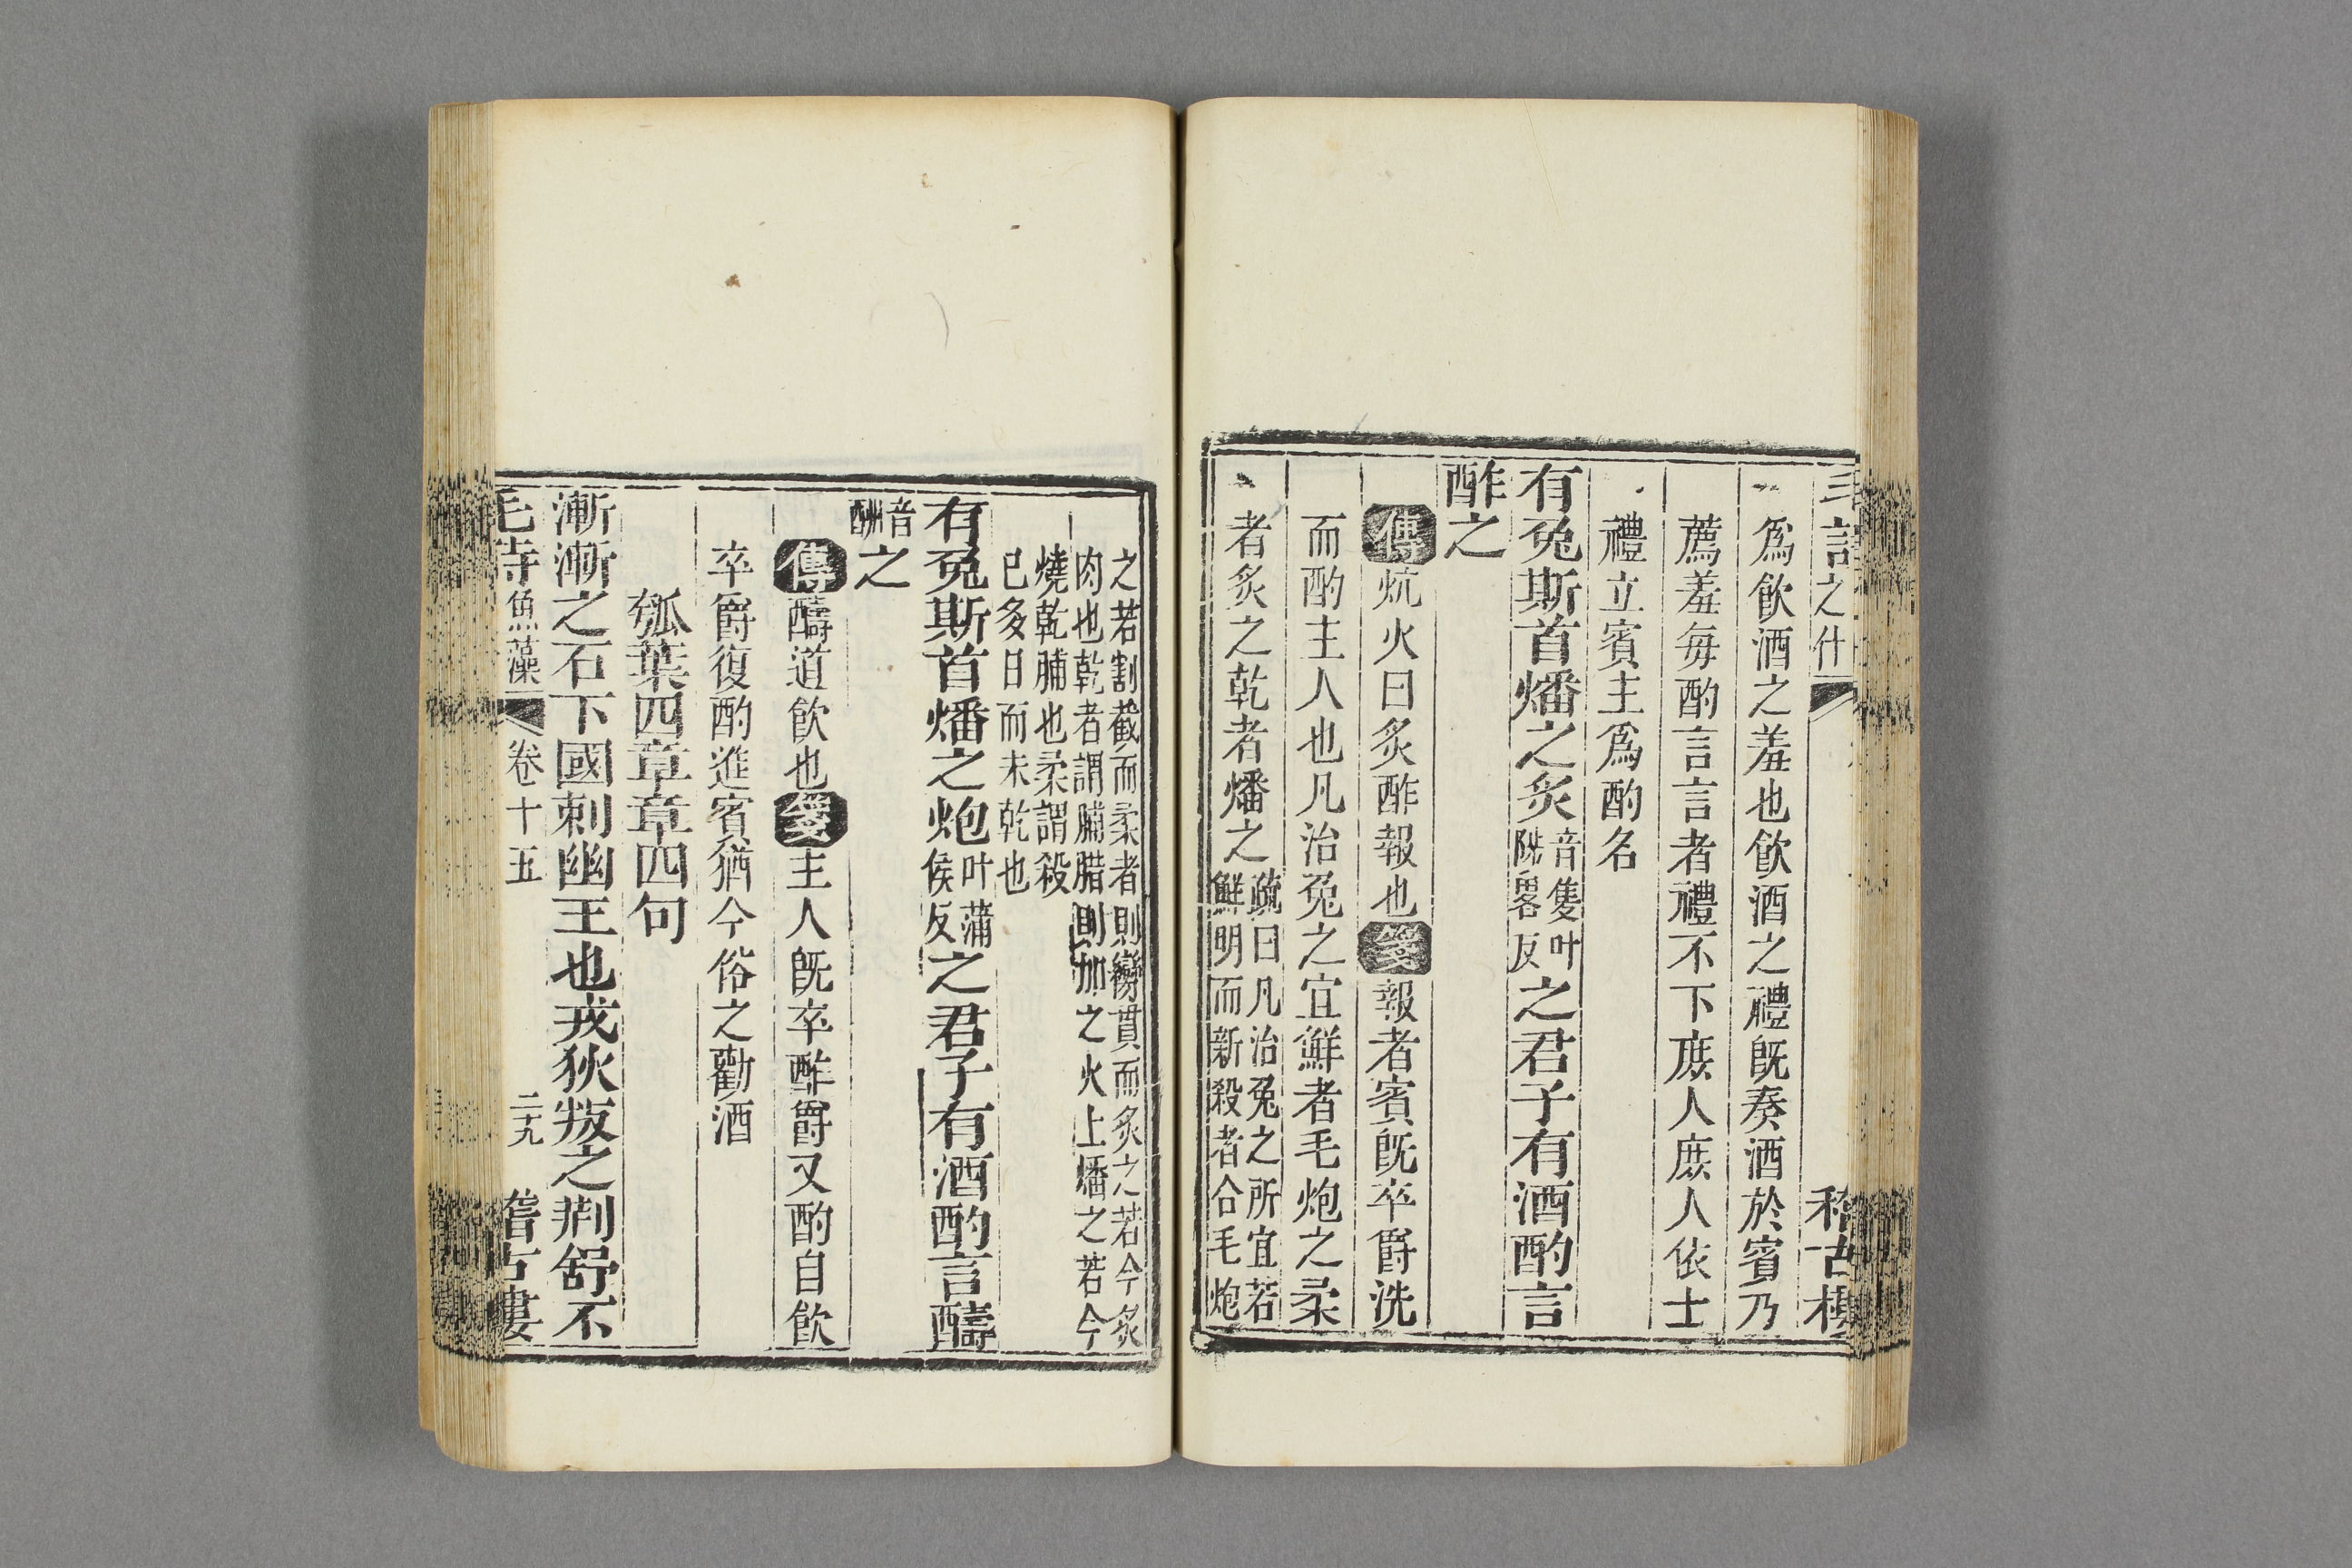 之什
爲飲酒之羞也飲酒之禮旣奏酒於賓乃
薦羞每酌言言者禮不下庶人庶人依士
禮立賓主爲酌名
有兔斯首燔之炙音隻叶陟畧反之君子有酒酌言
酢之
傳炕火曰炙酢報也箋報者賓旣卒爵洗
而酌主人也凡治兔之宜鮮者毛炮之柔
者炙之乾者燔之疏曰凡治兔之所宜若鮮明而新殺者合毛炮
之若割截而柔者則臠貫而炙之若今炙
肉也乾者謂脯腊則加之火上燔之若今
燒乾脯也柔謂殺
已多日而未乾也
有兔斯首燔之炮叶蒲侯反之君子有酒酌言醻
音酬之
傳醻道飲也箋主人旣卒酢爵又酌自飲
卒爵復酌進賓猶今俗之勸酒
瓠葉四章章四句
漸漸之石下國刺幽王也戎狄叛之荆舒不
毛詩魚藻 卷十五 二十九 稽古樓